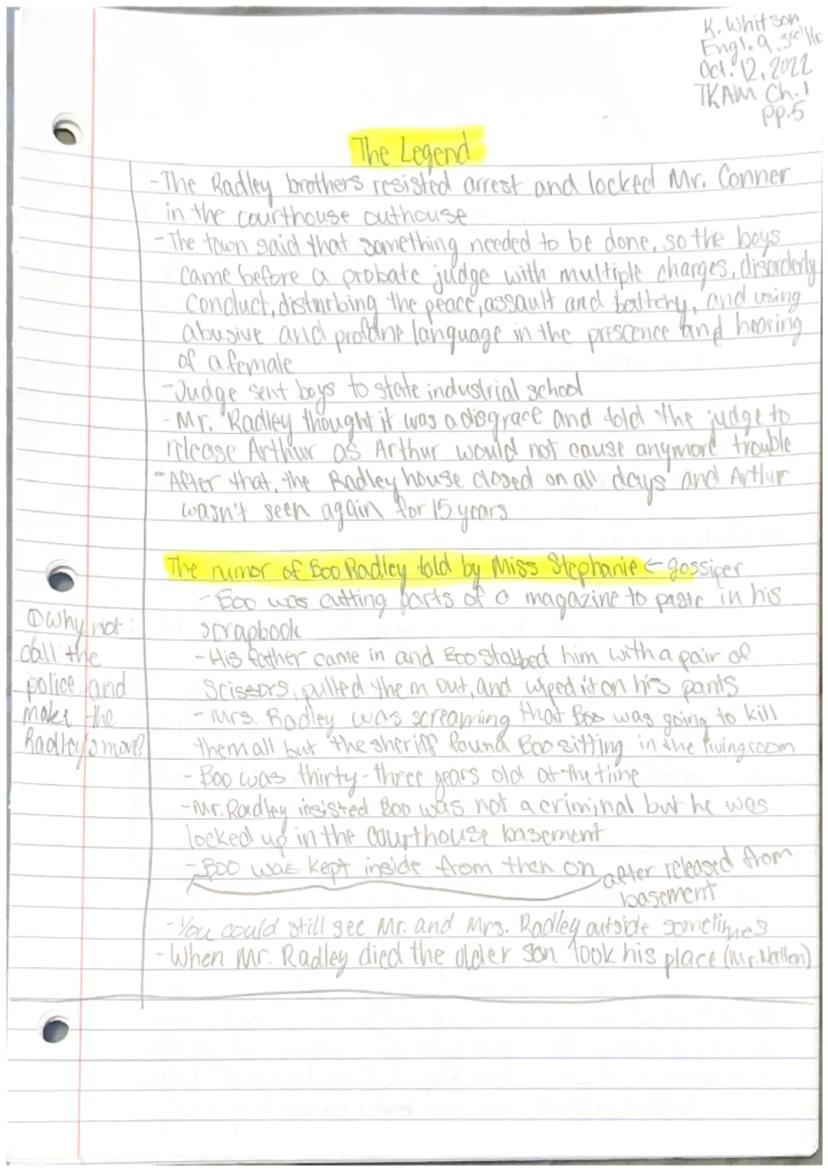 K. Whitson
Engl. 9, 3rd Hr
Oct. 12, 2022
TKAM Ch. 1
pp. 5
The Legend
- The Radley brothers resisted arrest and locked Mr. Conner
in the courthouse outhouse
- The town said that something needed to be done, so the boys
came before a probate judge with multiple charges, disorderly
conduct, disturbing the peace, assault and battery, and using
abusive and profane language in the prescence and hearing
of a female
- Judge sent boys to state industrial school
- Mr. Radley thought it was a disgrace and told the judge to
release Arthur as Arthur would not cause anymore trouble
- After that, the Radley house closed on all days and Arthur
wasn't seen again for 15 years
The rumor of Boo Radley told by Miss Stephanie ← gossiper
- Boo was cutting parts of a magazine to paste in his
scrapbook
- His father came in and Boo stabbed him with a pair of
scissors, pulled them out, and wiped it on his pants
- Mrs. Radley was screaming that Boo was going to kill
them all but the sheriff found Boo sitting in the living room
- Boo was thirty-three years old at the time
- Mr. Radley insisted Boo was not a criminal but he was
locked up in the courthouse basement
- Boo was kept inside from then on after released from
basement
- You could still see Mr. and Mrs. Radley outside sometimes
- When Mr. Radley died the older son took his place (Mr. Nathan)
① Why not
call the
police and
make the
Radley's move?